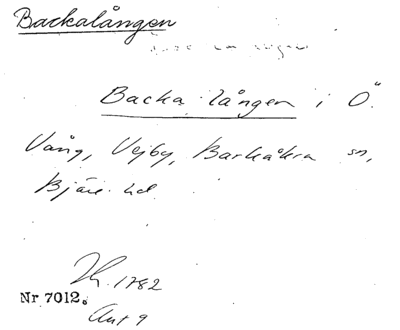 Backalången
Backa lången i Ö.
Vång, Vejby, Barkåkra sn,
Bjäre hd
1782
Nr 7012.
Akt 9